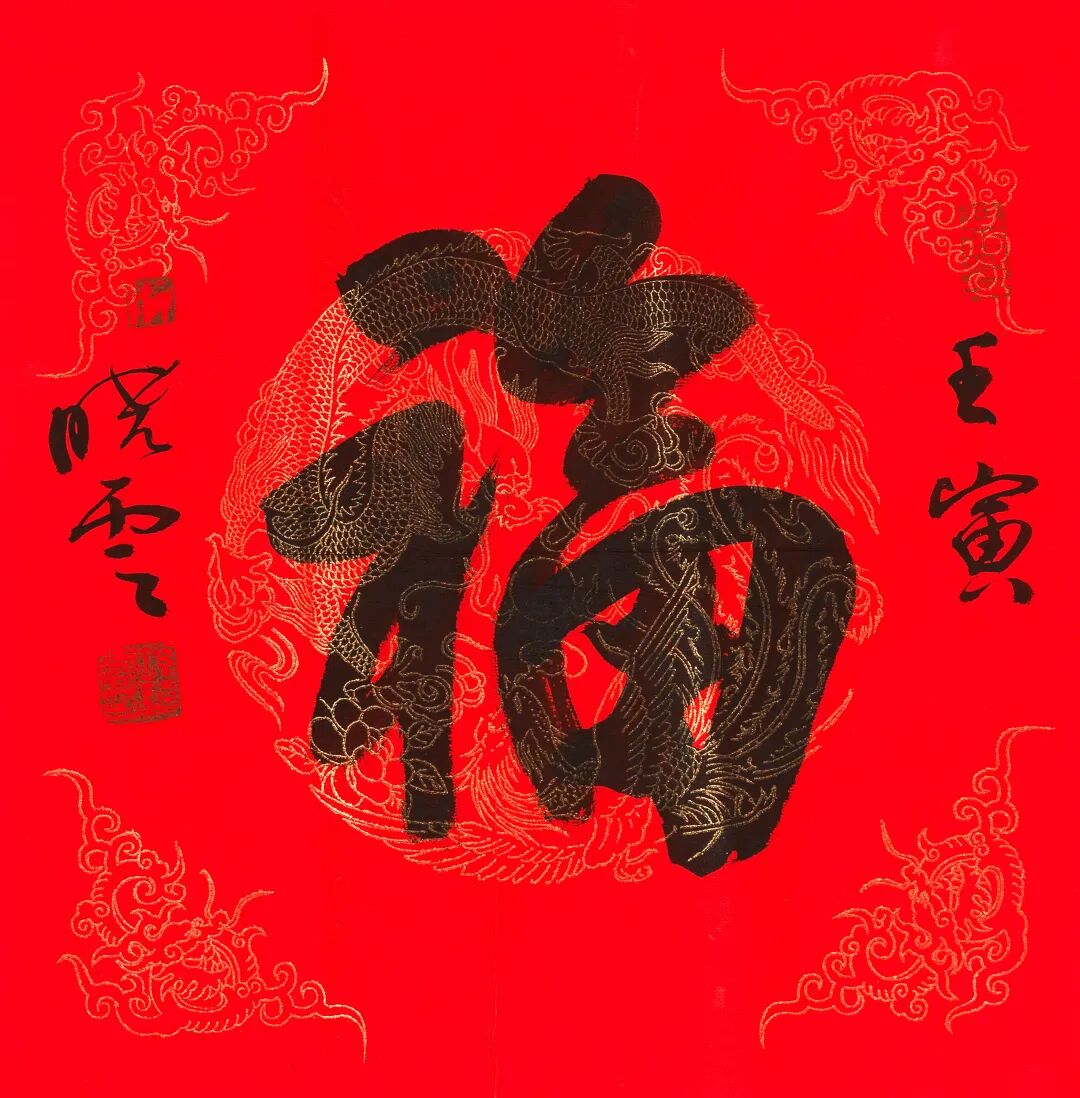 壬寅
福
晓雲